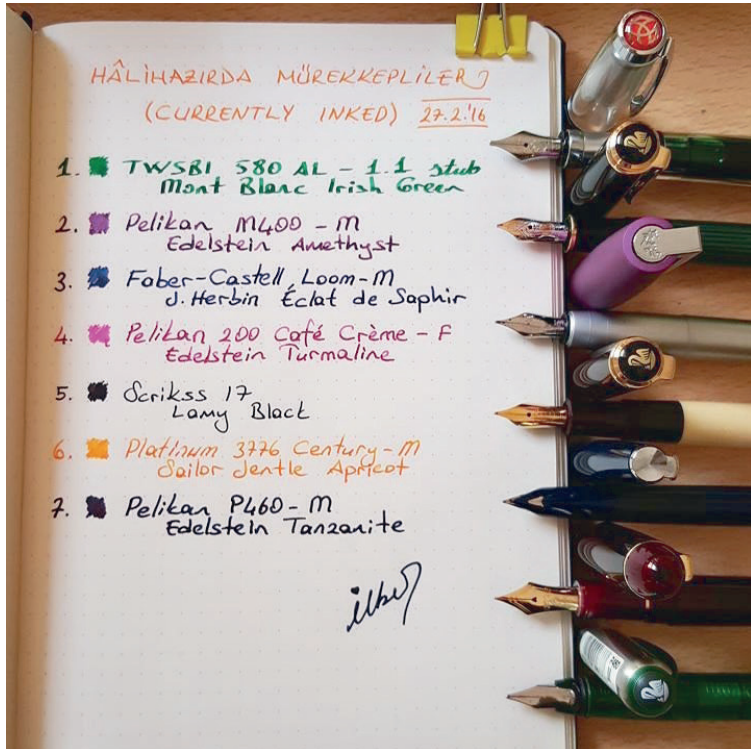 HÂLİHAZIRDA MÜREKKEPLİLER
(CURRENTLY INKED) 27.2.'16
1. TWSBI 580 AL - 1.1 stub
Mont Blanc Irish Green
2. Pelikan M400 - M
Edelstein Amethyst
3. Faber-Castell Loom - M
J. Herbin Éclat de Saphir
4. Pelikan 200 Café Crème - F
Edelstein Turmaline
5. Scrikss 17
Lamy Black
6. Platinum 3776 Century - M
Sailor Jentle Apricot
7. Pelikan P460 - M
Edelstein Tanzanite
ilker